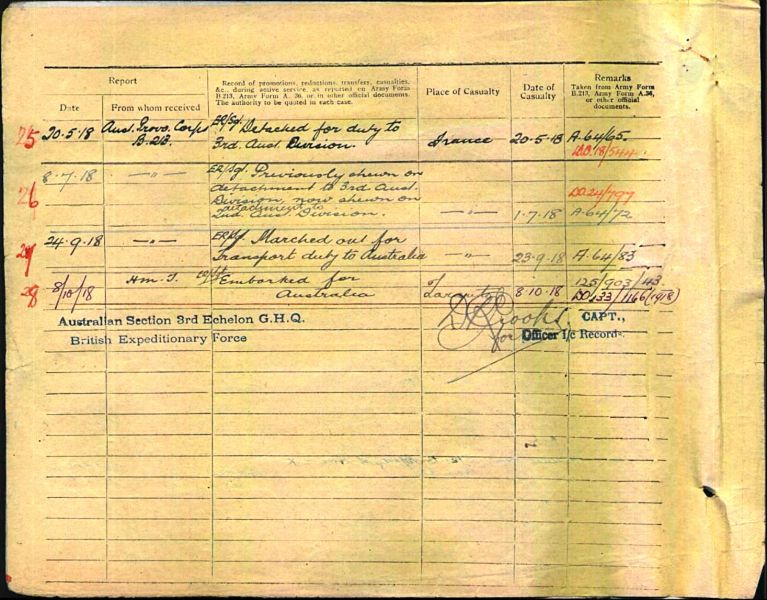 Report
Date
From whom received
Record of promotions, reductions, transfers, casualties,
&c., during active service, as reported on Army Form
B.213, Army Form A. 36, or in other official documents.
The authority to be quoted in each case.
Place of Casualty
Date of
Casualty
Remarks
Taken from Army Form
B.213, Army Form A.36,
or other official
documents.
25 20-5-18 Aust. Provo. Corps ER/Sgt. Detached for duty to France 20-5-18 A-64/65
B-213. 3rd. Aust. Division. DO.18/544
26 8-7-18 —"— ER/Sgt. Previously shewn on
detachment to 3rd Aust. DO.24/797
Division, now shewn on
detachment to
2nd. Aust. Division. —"— 1-7-18 A-64/72
27 24-9-18 —"— ER/Sgt. Marched out for
Transport duty to Australia —"— 23-9-18 A-64/83
28 8/10/18 Hm. T. Embarked for 8-10-18 125/903/43
Australia DO.133/1166(1918)
Australian Section 3rd Echelon G.H.Q.
British Expeditionary Force
CAPT.,
for Officer i/c Records.